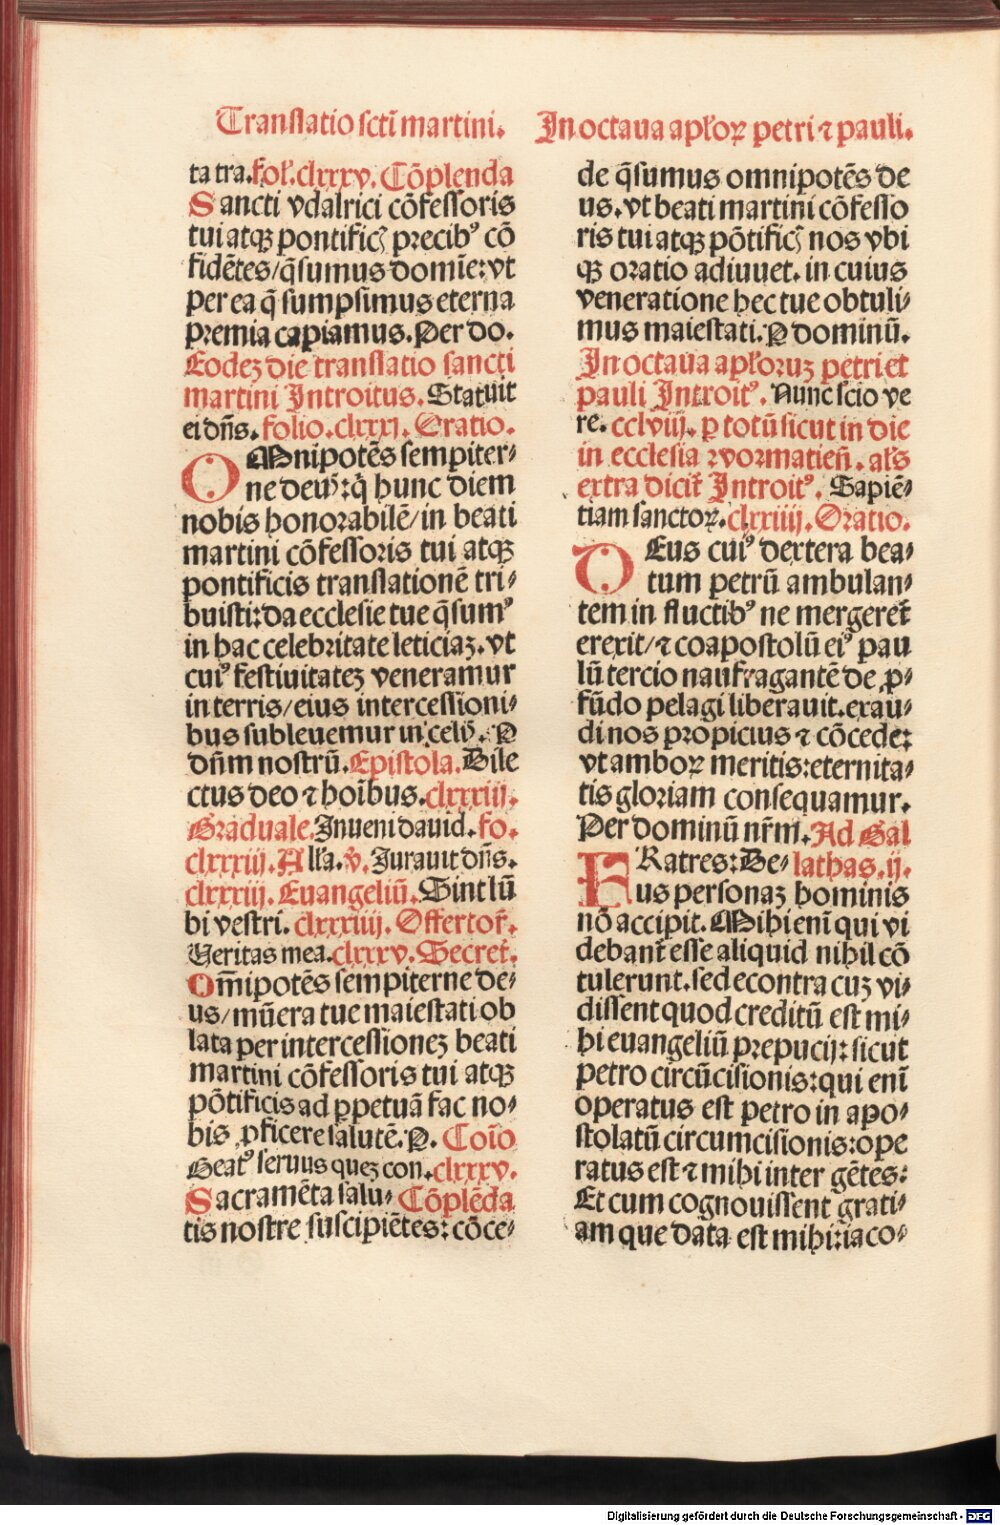 Translatio sctī martini.
ta tra. fol. clxxxv. Cōplenda
Sancti vdalrici cōfessoris
tui atqꝫ pontificꝭ precibꝰ cō
fidētes/q̄sumus domīe: vt
per ea q̄ sumpsimus eterna
premia capiamus. Per do.
Eodeꝫ die translatio sancti
martini Introitus. Statuit
ei dn̄s. folio. clxxxj. Oratio.
OMnipotēs sempiter⸗
ne deus: q̇ hunc diem
nobis honorabilē/in beati
martini cōfessoris tui atqꝫ
pontificis translationē tri⸗
buisti: da ecclesie tue q̄sumꝰ
in hac celebritate leticiaꝫ. vt
cuiꝰ festiuitateꝫ veneramur
in terris/eius intercessioni⸗
bus subleuemur in celis. P
dn̄m nostrū. Epistola. Dile
ctus deo ⁊ hoībus. clxxxiij.
Graduale. Inueni dauid. fo.
clxxxiij. Alla. v̄. Jurauit dn̄s.
clxxxiij. Euangeliū. Sint lū
bi vestri. clxxxiiij. Offertor̄.
Veritas mea. clxxxv. Secret̄.
Om̄ipotēs sempiterne de⸗
us/mūera tue maiestati ob
lata per intercessioneꝫ beati
martini cōfessoris tui atqꝫ
pōtificis ad ꝑpetuā fac no⸗
bis ꝓficere salutē. P. Coīo
Beatꝰ seruus queꝫ con. clxxxv.
Sacramēta salu⸗ Cōplēda
tis nostre suscipiētes: cōce⸗
In octaua apl'oꝝ petri ⁊ pauli.
de q̄sumus omnipotēs de
us. vt beati martini cōfesso
ris tui atqꝫ pōtificꝭ nos vbi
qꝫ oratio adiuuet. in cuius
veneratione hec tue obtuli⸗
mus maiestati. P dominū.
In octaua apl'oruꝫ petri et
pauli Introitꝰ. Nunc scio ve
re. cclviij. ꝑ totū sicut in die
in ecclesia ꝛvormatien̄. al's
extra dicit̄ Introitꝰ. Sapiē⸗
tiam sanctoꝝ. clxxiiij. Oratio.
DEus cuiꝰ dextera bea⸗
tum petrū ambulan⸗
tem in fluctibꝰ ne mergeret̄
erexit/⁊ coapostolū eiꝰ pau
lū tercio naufragantē de ꝓ⸗
fūdo pelagi liberauit. exau⸗
di nos propicius ⁊ cōcede:
vt amboꝝ meritis: eternita⸗
tis gloriam consequamur.
Per dominū nr̄m. Ad Gal
FRatres: De⸗ lathas. ij.
us personaꝫ hominis
nō accipit. Mihi enī qui vi
debant̄ esse aliquid nihil cō
tulerunt. sed econtra cuꝫ vi⸗
dissent quod creditū est mi⸗
hi euangeliū prepucij: sicut
petro circūcisionis: qui enī
operatus est petro in apo⸗
stolatū circumcisionis: ope
ratus est ⁊ mihi inter gētes:
Et cum cognouissent grati⸗
am que data est mihi: iaco⸗
Digitalisierung gefördert durch die Deutsche Forschungsgemeinschaft - DFG